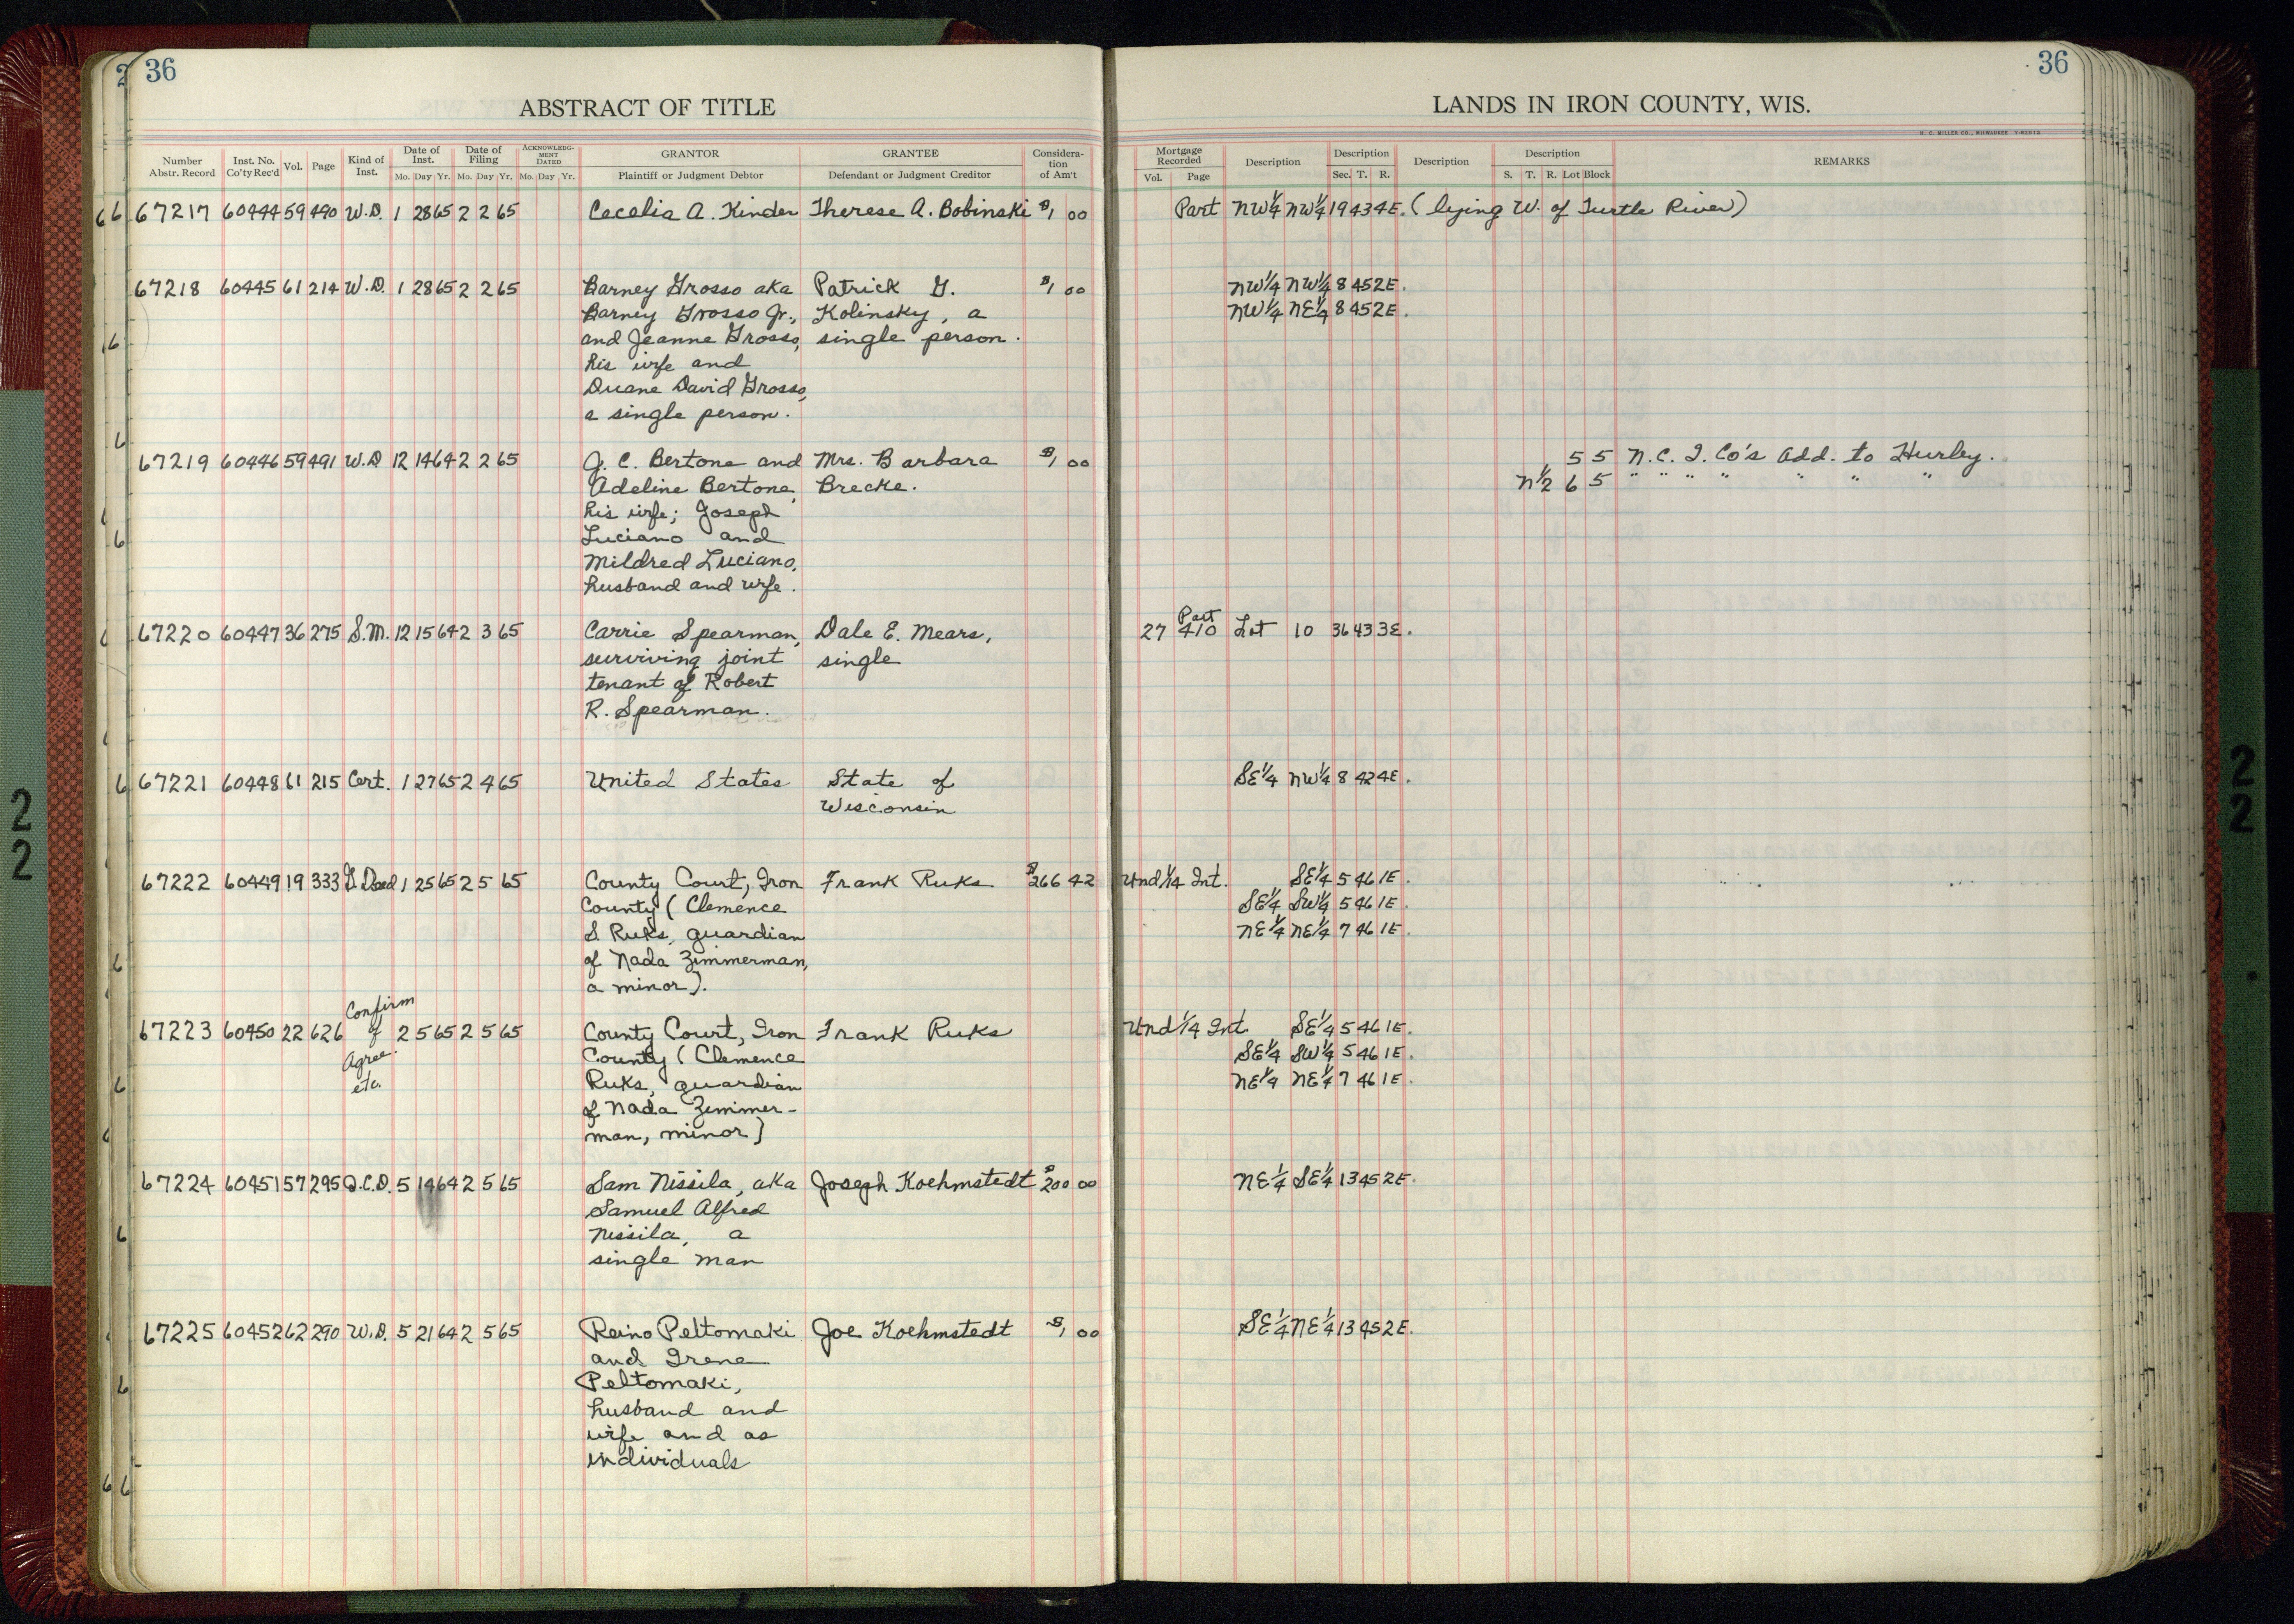 36
ABSTRACT OF TITLE
Number Abstr. Record
Inst. No. Co'ty Rec'd
Vol.
Page
Kind of Inst.
Date of Inst.
Mo. Day Yr.
Date of Filing
Mo. Day Yr.
ACKNOWLEDGMENT DATED
Mo. Day Yr.
GRANTOR
Plaintiff or Judgment Debtor
GRANTEE
Defendant or Judgment Creditor
Consideration of Am't
67217 60444 59 490 W.D. 1 28 65 2 2 65 Cecelia A. Kinder Therese A. Bobinski $1 00
67218 60445 61 214 W.D. 1 28 65 2 2 65 Barney Grosso aka Patrick G. $1 00
Barney Grosso Jr., Kolinsky, a
and Jeanne Grosso, single person.
his wife and
Duane David Grosso,
a single person.
67219 60446 59 491 W.D 12 14 64 2 2 65 J. C. Bertone and Mrs. Barbara $1 00
Adeline Bertone, Brecke.
his wife; Joseph
Luciano and
Mildred Luciano,
husband and wife.
67220 60447 36 275 S.M. 12 15 64 2 3 65 Carrie Spearman, Dale E. Mears,
surviving joint single
tenant of Robert
R. Spearman.
67221 60448 61 215 Cert. 1 27 65 2 4 65 United States State of
Wisconsin
67222 60449 19 333 G. Deed 1 25 65 2 5 65 County Court, Iron Frank Ruks $266 42
County (Clemence
S. Ruks, guardian
of Nada Zimmerman,
a minor).
Confirm
67223 60450 22 626 of 2 5 65 2 5 65 County Court, Iron Frank Ruks
Agree. County (Clemence
etc. Ruks, guardian
of Nada Zimmer-
man, minor)
67224 60451 57 295 Q.C.D. 5 14 64 2 5 65 Sam Nissila, aka Joseph Koehmstedt $200 00
Samuel Alfred
Nissila, a
single man
67225 60452 62 290 W.D. 5 21 64 2 5 65 Reino Peltomaki Joe Koehmstedt $1 00
and Irene
Peltomaki,
husband and
wife and as
individuals
36
LANDS IN IRON COUNTY, WIS.
H. C. MILLER CO., MILWAUKEE
Mortgage Recorded
Vol. Page
Description
Description
Sec. T. R.
Description
Description
S. T. R. Lot Block
REMARKS
Part NW1/4 NW1/4 19 43 4E. (lying W. of Turtle River)
NW1/4 NW1/4 8 45 2E.
NW1/4 NE1/4 8 45 2E.
5 5 N. C. I. Co's Add. to Hurley.
N1/2 6 5 " " " " " " "
Part
27 410 Lot 10 36 43 3E.
SE1/4 NW1/4 8 42 4E.
Und 1/14 Int. SE1/4 5 46 1E.
SE1/4 SW1/4 5 46 1E.
NE1/4 NE1/4 7 46 1E.
Und 1/14 Int. SE1/4 5 46 1E.
SE1/4 SW1/4 5 46 1E.
NE1/4 NE1/4 7 46 1E.
NE1/4 SE1/4 13 45 2E.
SE1/4 NE1/4 13 45 2E.
22
22